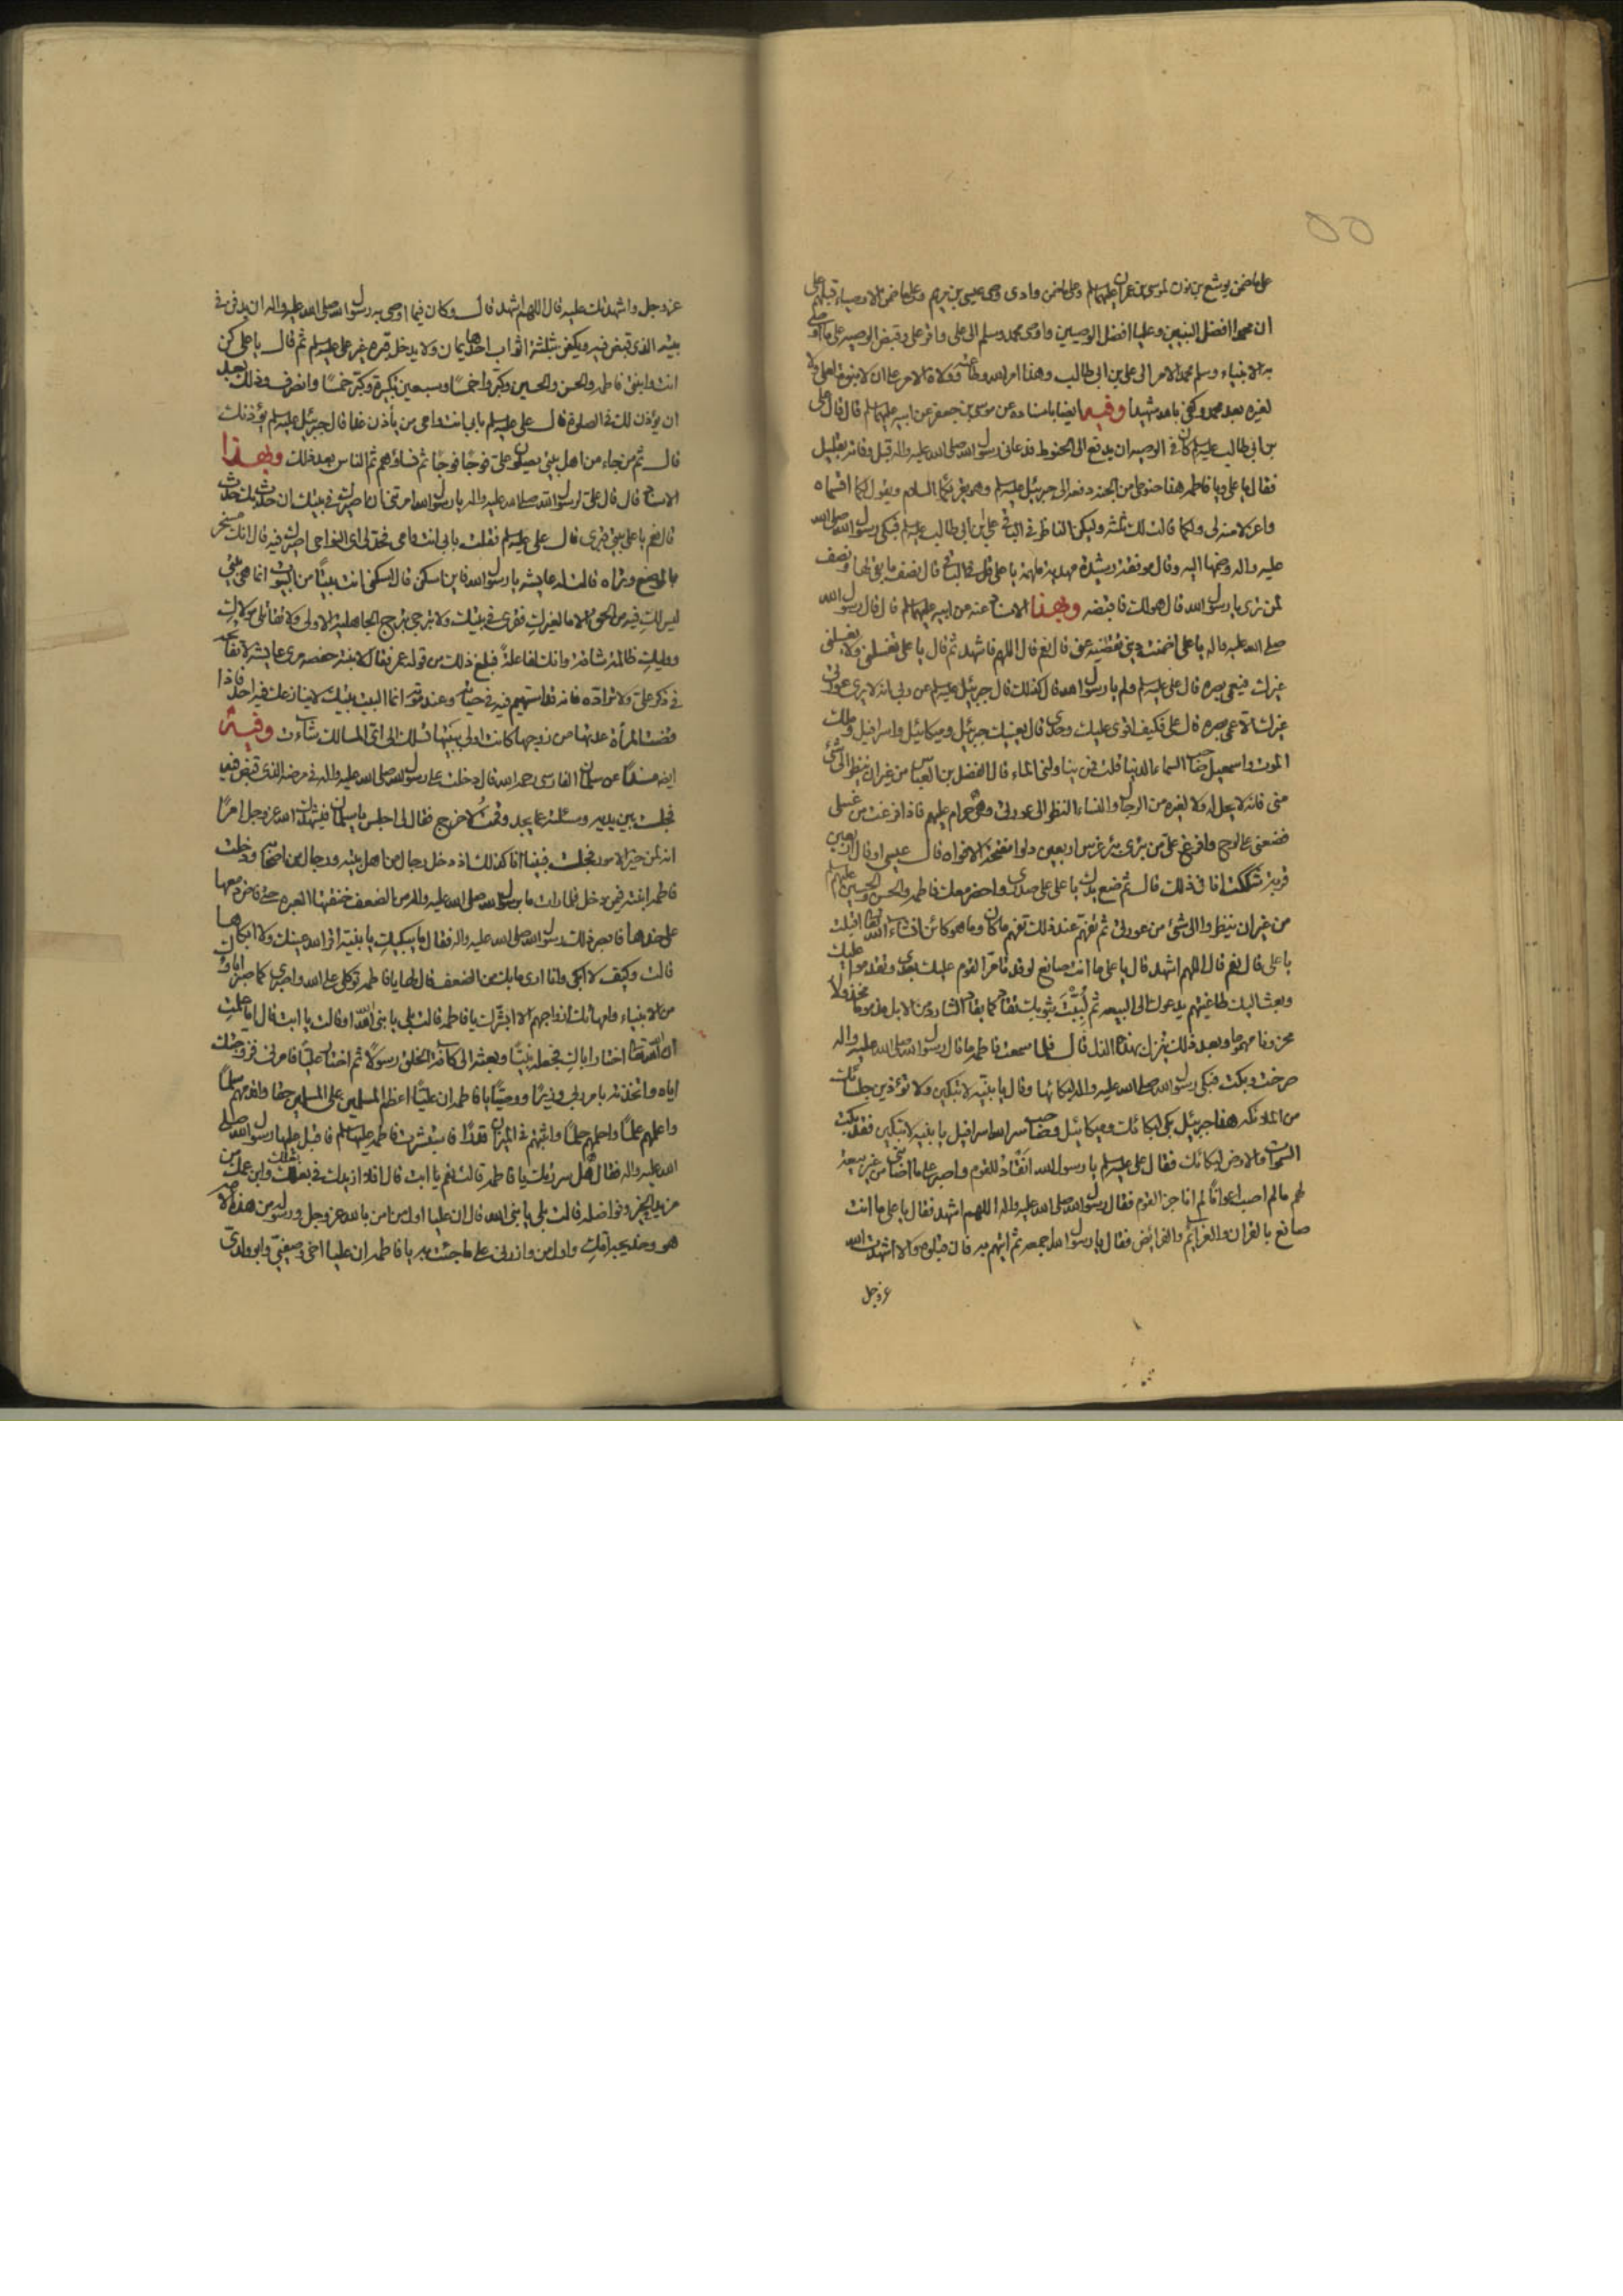 على ما ضمن يوشع بن نون لموسى بن عمران عليهما سلم وعلى ما ضمن وادى وصى عيسى بن مريم وعلى ما ضمن الاوصياء قبلهم على
ان محمدا افضل النبيين وعليا افضل الوصيين واوصى محمد وسلم الى على واقر على وقبض الوصية على ما اوصى
به الانبياء وسلم محمد الامر الى على بن ابى طالب وهذا امر الله وطاعته وولاه الامر على ان لا نبوة لعلى ولا
لغيره بعد محمد وكفى بالله شهيدا وفيه ايضا باسناده عن موسى بن جعفر عن ابيه عليهما سلم قال قال على
بن ابى طالب عليه سلم كان فى الوصية ان يدفع الى الحنوط فدعانى رسول الله صلى الله عليه واله قبل وفاته بقليل
فقال يا على ويا فاطمة هذا حنوطى من الجنة دفعه الى جبرئيل عليه سلم وهو يقرئكما السلام ويقول لكما اقسماه
واعزلا منه لى ولكما قالت لك ثلثه وليكن الناظر فى الباقى على بن ابى طالب عليه سلم فبكى رسول الله صلى الله
عليه واله وضمها اليه وقال موفقة رشيدة مهدية ملهمة يا على قل فى الباقى قال نصف ما بقى لها ونصف
لمن ترى يا رسول الله قال هو لك فاقبضه وبهذا الاسناد عنه عن ابيه عليهما سلم قال قال رسول الله
صلى الله عليه واله يا على اضمنت دينى تقضيه عنى قال نعم قال اللهم فاشهد ثم قال يا على تغسلنى ولا يغسلنى
غيرك فيعمى بصره قال على عليه سلم ولم يا رسول الله قال كذلك قال جبرئيل عليه سلم عن ربى انه لا يرى عورتى
غيرك الا عمى بصره قال على فكيف اقوى عليك وحدى قال يعينك جبرئيل وميكائيل واسرافيل وملك
الموت واسمعيل صاحب السماء الدنيا قلت فمن يناولنى الماء قال الفضل بن العباس من غير ان ينظر الى شئ
منى فانه لا يحل له ولا لغيره من الرجال والنساء النظر الى عورتى وهى حرام عليهم فاذا فرغت من غسلى
فضعنى على لوح وافرغ على من بئرى بئر غرس اربعين دلوا مفتحة الافواه قال عيسى او قال اربعين
قربة شككت انا فى ذلك قال ثم ضع يدك يا على على صدرى واحضر معك فاطمة والحسن والحسين عليهم سلم
من غير ان ينظروا الى شئ من عورتى ثم تفهم عند ذلك تفهم ما كان وما هو كائن ان شاء الله تعالى اقبلت
يا على قال نعم قال اللهم اشهد قال يا على ما انت صانع لو قد تامر القوم عليك بعدى وتقدموا عليك
وبعث اليك طاغيتهم يدعوك الى البيعة ثم لببت بثوبك تقاد كما يقاد الشارد من الابل مذموما مخذولا
محزونا مهموما وبعد ذلك ينزل بهذه الذل قال فلما سمعت فاطمة ما قال رسول الله صلى الله عليه واله
صرخت وبكت فبكى رسول الله صلى الله عليه واله لبكائها وقال يا بنية لا تبكين ولا تؤذين جلسائك
من الملائكة هذا جبرئيل بكى لبكائك وميكائيل وصاحب سر الله اسرافيل يا بنية لا تبكين فقد بكت
السموات والارض لبكائك فقال على عليه سلم يا رسول الله انقاد للقوم واصبر على ما اصابنى من غير بيعة
لهم ما لم اصب اعوانا لم اناجز القوم فقال رسول الله صلى الله عليه واله اللهم اشهد فقال يا على ما انت
صانع بالقران والعزائم والفرائض فقال يا رسول الله اجمعه ثم اتيهم به فان قبلوه والا اشهدت الله
عز وجل
عز وجل واشهدتك عليه قال اللهم اشهد قال وكان فيما اوصى به رسول الله صلى الله عليه واله ان يدفن فى
بيته الذى قبض فيه ويكفن بثلثة اثواب احدها يمان ولا يدخل قبره غير على عليه سلم ثم قال يا على كن
انت وابنتى فاطمة والحسن والحسين وكبروا خمسا وسبعين تكبيرة وكبر خمسا وانصرف وذلك بعد
ان يؤذن لك فى الصلوة قال على عليه سلم بابى انت وامى من ياذن غدا قال جبرئيل عليه سلم يؤذنك
قال ثم من جاء من اهل بيتى يصلون على فوجا فوجا ثم نساؤهم ثم الناس بعد ذلك وبهذا
الاسناد قال قال على لرسول الله صلى الله عليه واله يا رسول الله امرتنى ان اصيرك فى بيتك ان حدث بك حدث
قال نعم يا على بيتى قبرى قال على عليه سلم فقلت بابى انت وامى فحد لى اى النواحى اصيرك فيه قال انك مسخر
بالموضع وتراه قالت له عايشة يا رسول الله فاين اسكن قال اسكنى انت بيتا من البيوت انما هى بيتى
ليس لك فيه من الحق الا ما لغيرك فقرى فى بيتك ولا تبرجى تبرج الجاهلية الاولى ولا تقاتلى مولاك
ووليك ظالمة شاقة وانك لفاعلة فبلغ ذلك من قوله عمر فقال لابنته حفصة مرى عايشة لا تفاتحه
فى ذكر على ولا تراده فانه قد استهيم فيه فى حياته وعند موته انما البيت بيتك لا ينازعك فيه احد فاذا
قضت المراة عدتها من زوجها كانت اولى ببيتها تسلك الى اى المسالك شاءت وفيه
ايضا مسندا عن سلمان الفارسى رحمه الله قال دخلت على رسول الله صلى الله عليه واله فى مرضه الذى قبض فيه
فجلست بين يديه وسئلته عما يجد وقمت لاخرج فقال لى اجلس يا سلمان فيشهدك الله عز وجل امرا
انه لمن خير الامور فجلست فبينا انا كذلك اذ دخل رجال من اهل بيته ورجال من اصحابه ودخلت
فاطمة ابنته فيمن دخل فلما رات ما برسول الله صلى الله عليه واله من الضعف خنقتها العبرة حتى فاض دمعها
على خدها فابصر ذلك رسول الله صلى الله عليه واله فقال ما يبكيك يا بنية اقر الله عينك ولا ابكاها
قالت وكيف لا ابكى وانا ارى ما بك من الضعف قال لها يا فاطمة توكلى على الله واصبرى كما صبر اباؤك
من الانبياء وامهاتك ازواجهم الا ابشرك يا فاطمة قالت بلى يا نبى الله او قالت يا ابت قال اما علمت
ان الله تعالى اختار اباك فجعله نبيا وبعثه الى كافة الخلق رسولا ثم اختار عليا فامرنى فزوجتك
اياه واتخذته بامر ربى وزيرا ووصيا يا فاطمة ان عليا اعظم المسلمين على المسلمين حقا واقدمهم سلما
واعلمهم علما واحلمهم حلما واثبتهم فى الميزان قدرا فاستبشرت فاطمة عليها سلم فاقبل عليها رسول الله صلى
الله عليه واله فقال هل سررتك يا فاطمة قالت نعم يا ابت قال افلا ازيدك فى بعلك وابن عمك من
مزيد الخير وفواضله قالت بلى يا نبى الله قال ان عليا اول من امن بالله عز وجل ورسوله من هذه الامة
هو وخديجة امك واول من وازرنى على ما جئت به يا فاطمة ان عليا اخى وصفيى وابو ولدى